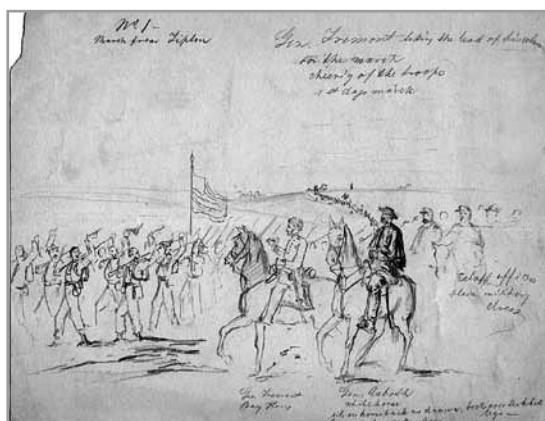 No 1-
March from Tipton
Gen Fremont taking the lead of division
on the march
cheering of the troops
1st days march
Staff officers
blue military
dress
Gen Fremont
Bay Horse
Gen Asboth
white horse
sits on horseback as drawn,
legs -